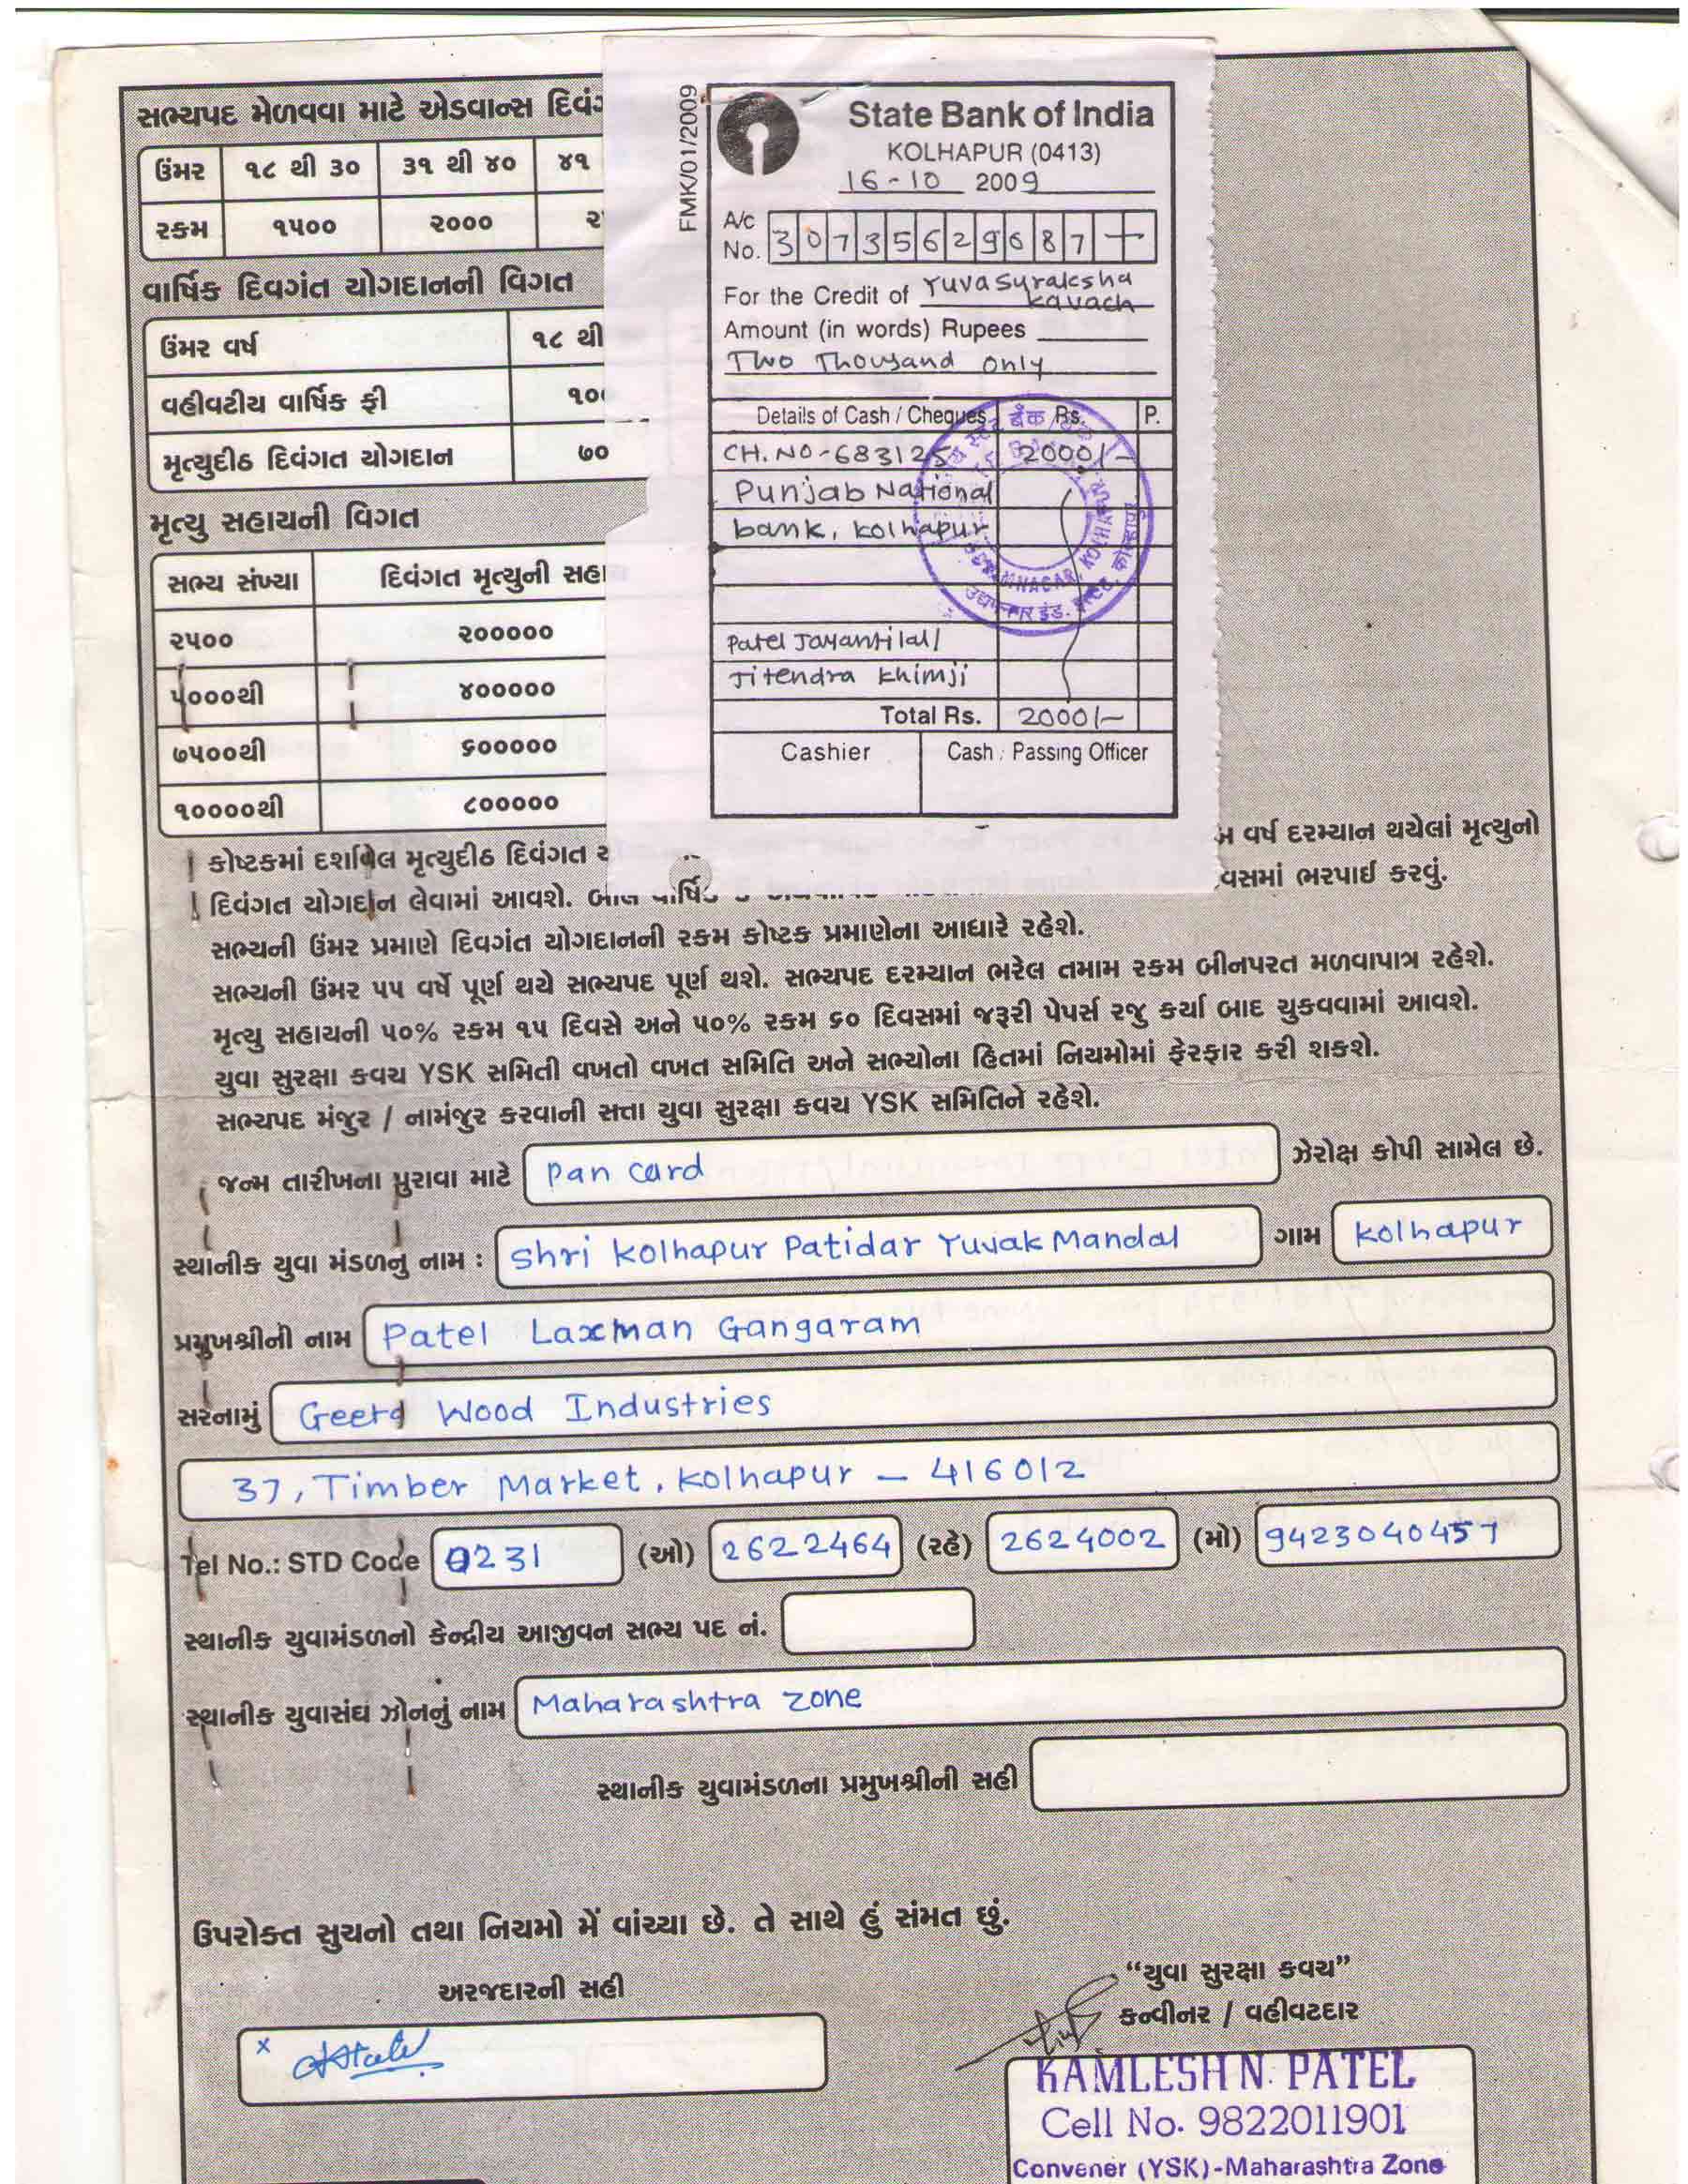 સભ્યપદ મેળવવા માટે એડવાન્સ
ઉંમર ૧૮ થી ૩૦ ૩૧ થી ૪૦ ૪૧
રકમ ૧૫૦૦ ૨૦૦૦
વાર્ષિક દિવગંત યોગદાનની વિગત
ઉંમર વર્ષ ૧૮ થી
વહીવટીય વાર્ષિક ફી
મૃત્યુદીઠ દિવંગત યોગદાન ૭૦
મૃત્યુ સહાયની વિગત
સભ્ય સંખ્યા દિવંગત મૃત્યુની
૨૫૦૦ ૨૦૦૦૦૦
૫૦૦૦થી ૪૦૦૦૦૦
૭૫૦૦થી ૬૦૦૦૦૦
૧૦૦૦૦થી ૮૦૦૦૦૦
FMK/01/2009
State Bank of India
KOLHAPUR (0413)
16-10 2009
A/c No. 30735629687
For the Credit of Yuva Suraksha
kavach
Amount (in words) Rupees
Two Thousand only
Details of Cash / Cheques Rs. P.
CH. NO-683125 2000/-
Punjab National
bank, kolhapur
Patel Jayantilal/
Jitendra khimji
Total Rs. 2000/-
Cashier Cash / Passing Officer
કોષ્ટકમાં દર્શાવેલ મૃત્યુદીઠ દિવંગત વર્ષ દરમ્યાન થયેલાં મૃત્યુનો
દિવંગત યોગદાન લેવામાં આવશે. ભરપાઈ કરવું.
સભ્યની ઉંમર પ્રમાણે દિવગંત યોગદાનની રકમ કોષ્ટક પ્રમાણેના આધારે રહેશે.
સભ્યની ઉંમર ૫૫ વર્ષે પૂર્ણ થયે સભ્યપદ પૂર્ણ થશે. સભ્યપદ દરમ્યાન ભરેલ તમામ રકમ બીનપરત મળવાપાત્ર રહેશે.
મૃત્યુ સહાયની ૫૦% રકમ ૧૫ દિવસે અને ૫૦% રકમ ૬૦ દિવસમાં જરૂરી પેપર્સ રજુ કર્યા બાદ ચુકવવામાં આવશે.
યુવા સુરક્ષા કવચ YSK સમિતી વખતો વખત સમિતિ અને સભ્યોના હિતમાં નિયમોમાં ફેરફાર કરી શકશે.
સભ્યપદ મંજુર / નામંજુર કરવાની સત્તા યુવા સુરક્ષા કવચ YSK સમિતિને રહેશે.
જન્મ તારીખના પુરાવા માટે pan card ઝેરોક્ષ કોપી સામેલ છે.
સ્થાનીક યુવા મંડળનુ નામ : shri kolhapur Patidar Yuvak Mandal ગામ kolhapur
પ્રમુખશ્રીની નામ Patel Laxman Gangaram
સરનામું Geeta Wood Industries
37, Timber Market, kolhapur - 416012
Tel No.: STD Code 0231 (ઓ) 2622464 (રહે) 2624002 (મો) 9423040457
સ્થાનીક યુવામંડળનો કેન્દ્રીય આજીવન સભ્ય પદ નં.
સ્થાનીક યુવાસંઘ ઝોનનું નામ Maharashtra zone
સ્થાનીક યુવામંડળના પ્રમુખશ્રીની સહી
ઉપરોક્ત સુચનો તથા નિયમો મેં વાંચ્યા છે. તે સાથે હું સંમત છું.
અરજદારની સહી
"યુવા સુરક્ષા કવચ"
કન્વીનર / વહીવટદાર
KAMLESH N. PATEL
Cell No. 9822011901
Convener (YSK)-Maharashtra Zone